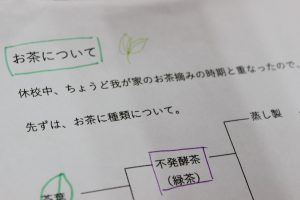 お茶について
休校中、ちょうど我が家のお茶摘みの時期と重なったので、
先ずは、お茶に種類について。
蒸し製
不発酵茶
（緑茶）
茶葉